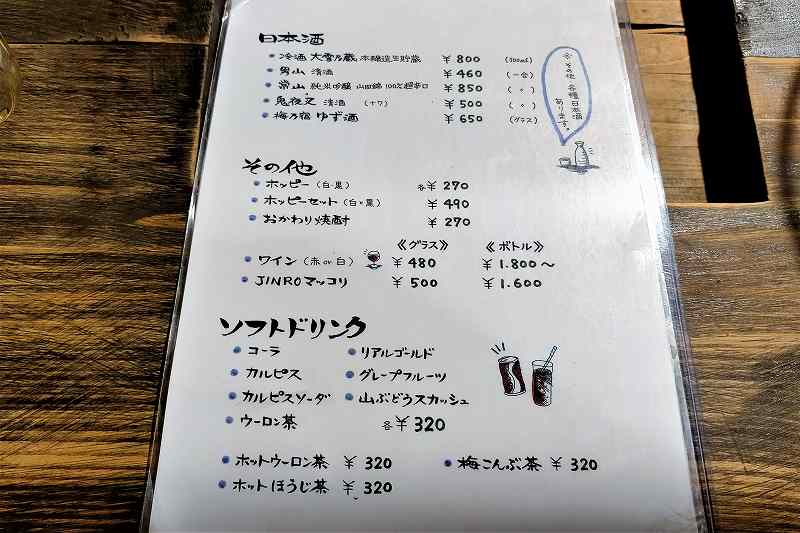 日本酒
冷酒 大雪乃蔵 本醸造生貯蔵 ¥800 (300ml)
男山 清酒 ¥460 (一合)
常山 純米吟醸 山田錦100%超辛口 ¥850 (〃)
鬼夜叉 清酒 ¥500 (〃)
梅乃宿 ゆず酒 ¥650 (グラス)
その他 各種日本酒
あります。
その他
ホッピー(白・黒) 各¥270
ホッピーセット(白・黒) ¥490
おかわり焼酎 ¥270
《グラス》 《ボトル》
ワイン(赤or白) ¥480 ¥1.800〜
JINROマッコリ ¥500 ¥1.600
ソフトドリンク
コーラ リアルゴールド
カルピス グレープフルーツ
カルピスソーダ 山ぶどうスカッシュ
ウーロン茶 各¥320
ホットウーロン茶 ¥320 梅こんぶ茶 ¥320
ホットほうじ茶 ¥320